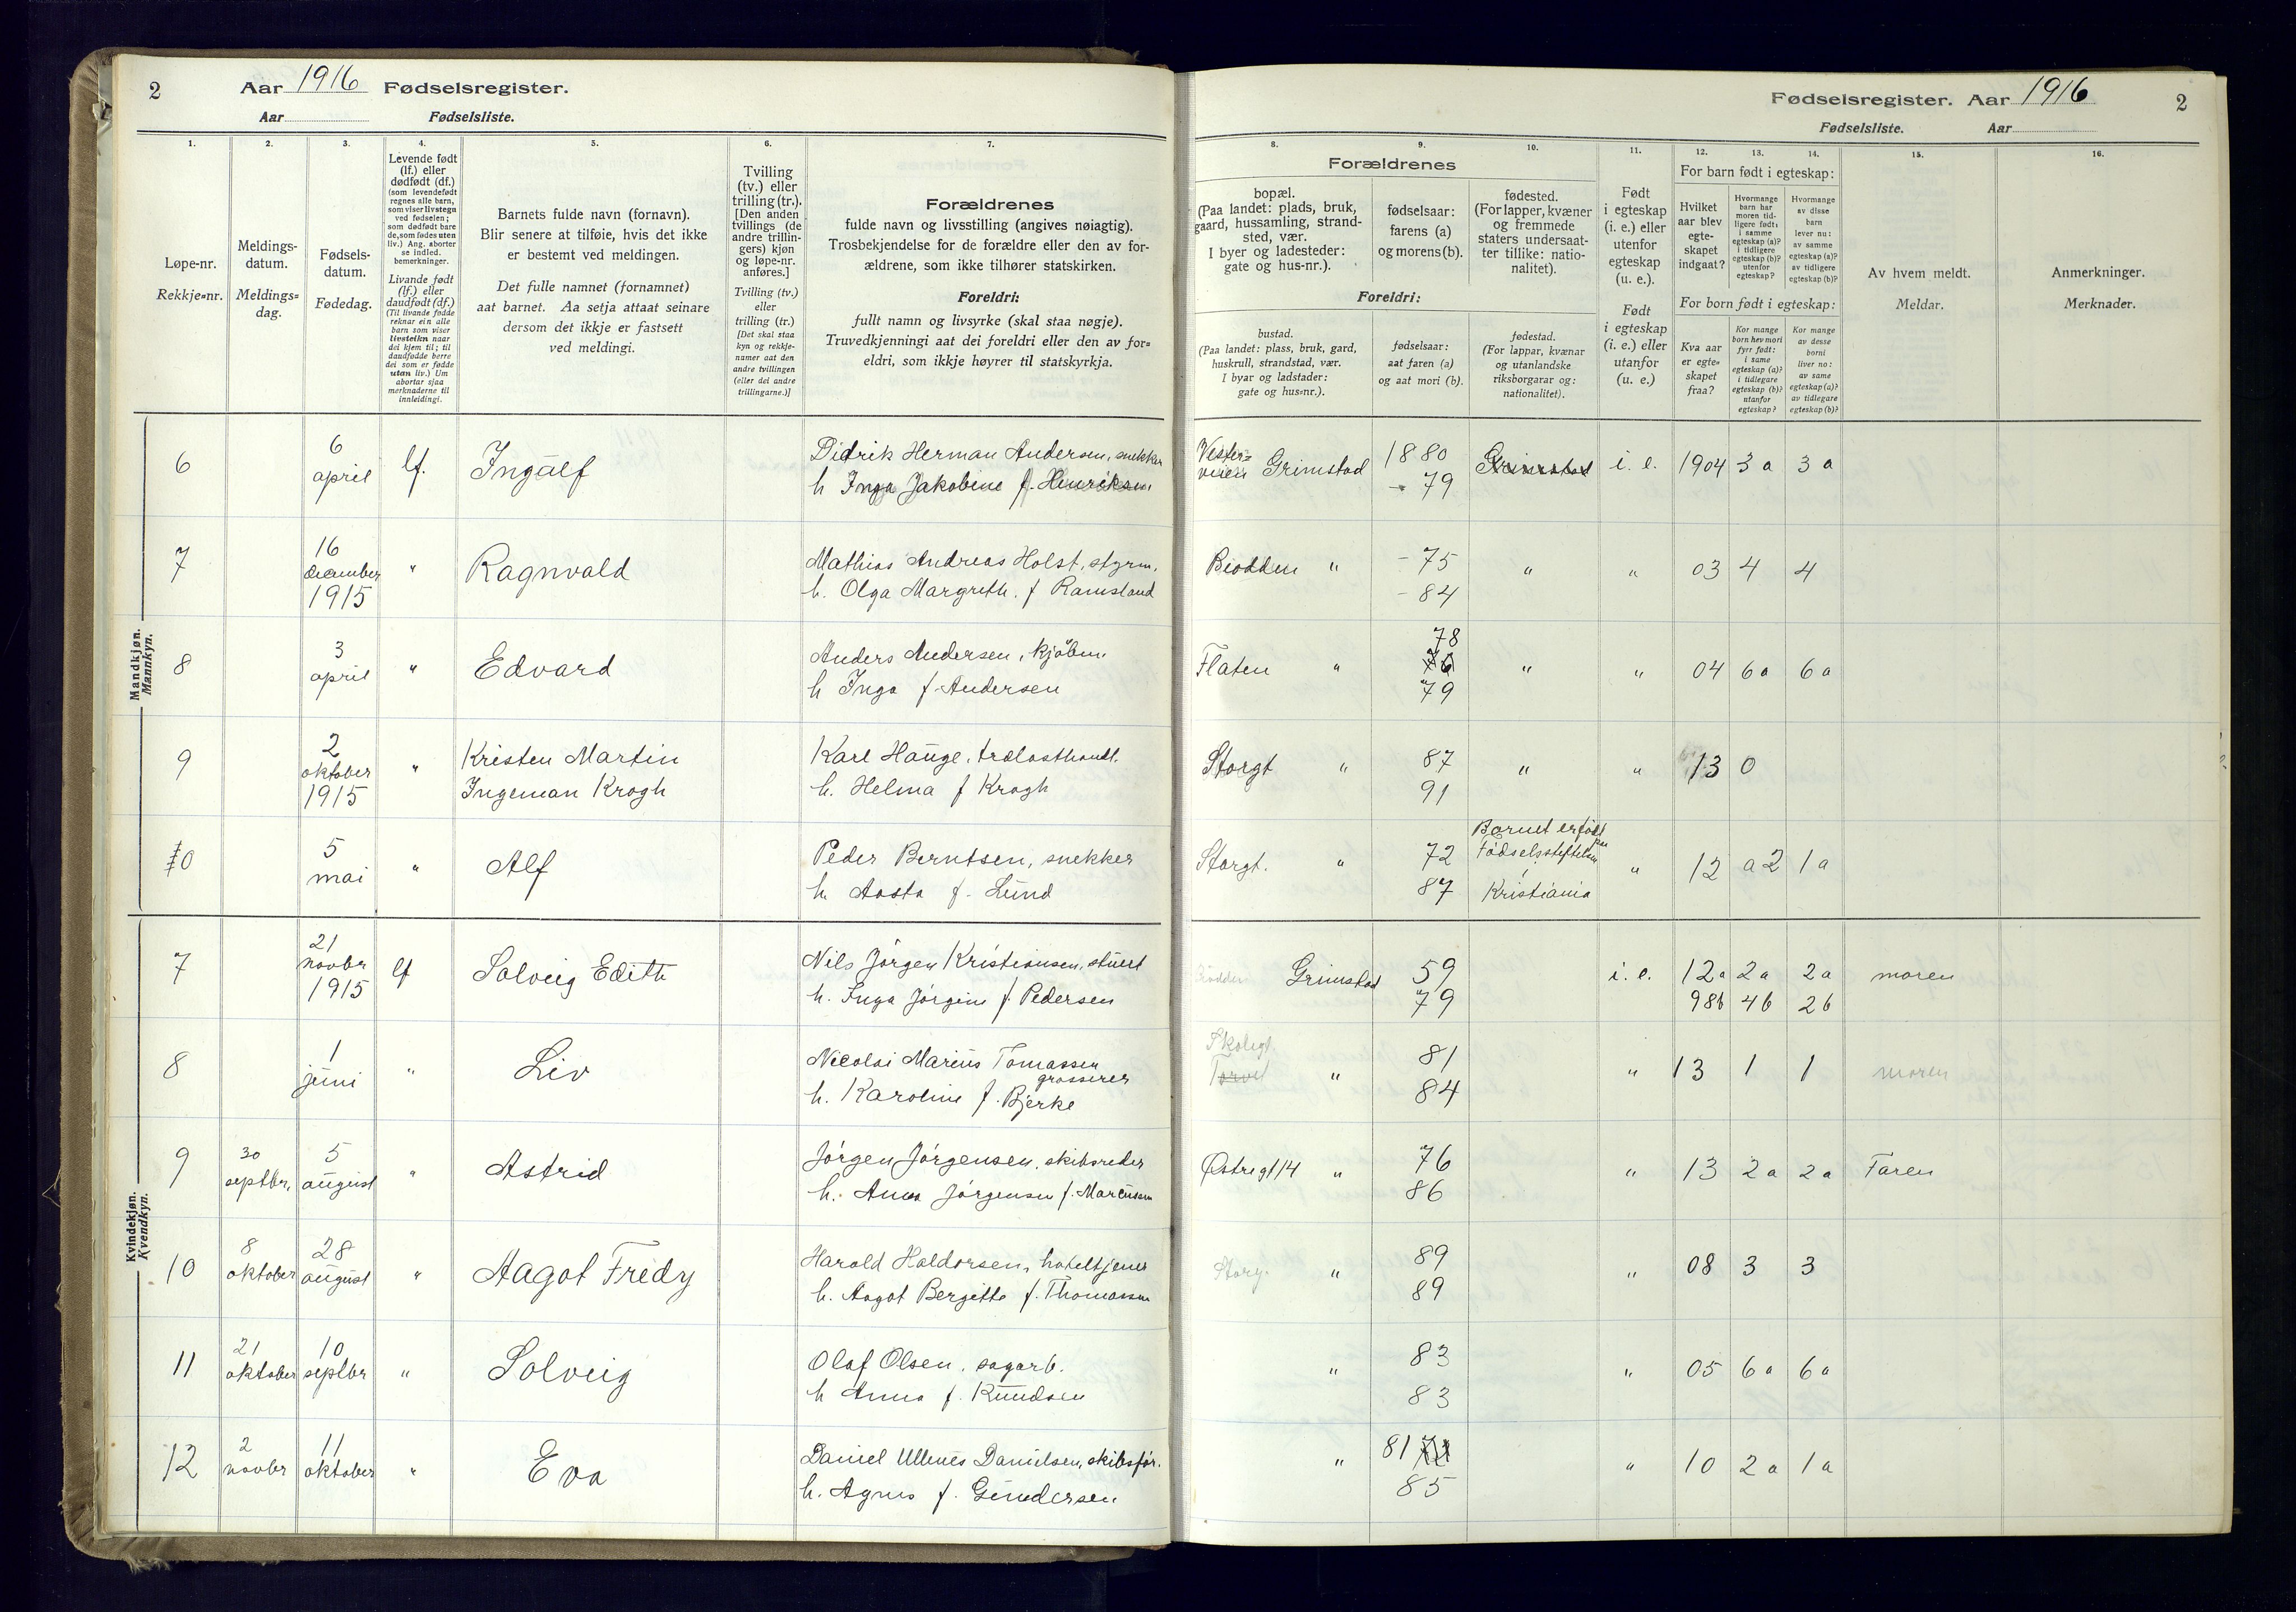 2
Aar 1916 Fødselsregister.
Aar Fødselsliste.
1.
2.
3.
4.
5.
6.
7.
Løpe-nr.
Rekkje-nr.
Meldings-
datum.
Meldings-
dag.
Fødsels-
datum.
Fødedag.
Levende født
(lf.) eller
dødfødt (df.)
(som levendefødt
regnes alle barn,
som viser livstegn
ved fødselen;
som dødfødt bare
de, som fødes uten
liv.) Ang. aborter
se indled.
bemerkninger.
Livande født
(lf.) eller
daudfødt (df.)
(Til livande fødde
reknar ein alle
barn som viser
livsteikn naar
dei kjem til; til
daudfødde berre
dei som er fødde
utan liv.) Um
abortar sjaa
merknaderne til
innleidingi.
Barnets fulde navn (fornavn).
Blir senere at tilføie, hvis det ikke
er bestemt ved meldingen.
Det fulle namnet (fornamnet)
aat barnet. Aa setja attaat seinare
dersom det ikkje er fastsett
ved meldingi.
Tvilling
(tv.) eller
trilling (tr.).
[Den anden
tvillings (de
andre trillin-
gers) kjøn
og løpe-nr.
anføres.]
Tvilling (tv.)
eller
trilling (tr.)
[Det skal staa
kyn og rekkje-
namer aat den
andre tvillingen
(eller dei andre
trillingarne.)]
Forældrenes
fulde navn og livsstilling (angives nøiagtig).
Trosbekjendelse for de forældre eller den av for-
ældrene, som ikke tilhører statskirken.
Foreldri:
fullt namn og livsyrke (skal staa nøgje).
Truvedkjenningi aat dei foreldri eller den av for-
eldri, som ikkje høyrer til statskyrkja.
Mandkjøn.
Mannkyn.
6
6
april
lf.
Ingalf
Didrik Herman Andersen, snekker
h Inga Jakobine f. Henriksen
7
16
december
1915
"
Ragnvald
Mathias Andreas Holst, styrm.
h. Olga Margreth. f Ramsland
8
3
april
"
Edvard
Anders Andersen, kjøbm.
h Inga f Andersen
9
2
oktober
1915
"
Kristen Martin
Ingeman Krogh
Karl Hauge, trælasthandl.
h. Helma f Krogh
10
5
mai
"
Alf
Peder Berntsen, snekker
h Aasta f. Lund
Kvindekjøn.
Kvendkyn.
7
21
novbr
1915
lf
Solveig Edith
Nils Jørgen Kristiansen, stuert
h. Inga Jørgine f. Pedersen
8
1
juni
"
Liv
Nicolai Marius Tomassen
grosserer
h. Karoline f. Bjerke
9
30
septbr.
5
august
"
Astrid
Jørgen Jørgensen, skibsreder
h. Anna Jørgensen f. Marcussen
10
8
oktober
28
august
"
Aagot Fredy
Harald Haldorsen, hoteltjener
h. Aagot Bergitte f. Thomassen
11
21
oktober
10
septbr
"
Solveig
Olaf Olsen, sagarb.
h Anna f. Knudsen
12
2
novbr
11
oktober
"
Eva
Daniel Ullenes Danielsen, skibsfør.
h. Agnes f. Gundersen
Fødselsregister. Aar 1916
2
Fødselsliste. Aar
8.
9.
10.
11.
12.
13.
14.
15.
16.
Forældrenes
bopæl.
(Paa landet: plads, bruk,
gaard, hussamling, strand-
sted, vær.
I byer og ladesteder:
gate og hus-nr.).
fødselsaar:
farens (a)
og morens (b).
fødested.
(For lapper, kvæner
og fremmede
staters undersaat-
ter tillike: natio-
nalitet).
Foreldri:
bustad.
(Paa landet: plass, bruk, gard,
huskrull, strandstad, vær.
I byar og ladstader:
gate og hus-nr.).
fødselsaar:
aat faren (a)
og aat mori (b).
fødestad.
(For lappar, kvænar
og utanlandske
riksborgarar og:
nationalitet).
Født
i egteskap
(i. e.) eller
utenfor
egteskap
(u. e.).
Født
i egteskap
(i. e.) eller
utanfor
(u. e.)
For barn født i egteskap:
Hvilket
aar blev
egte-
skapet
indgaat?
Hvormange
barn har
moren tid-
ligere født:
i samme
egteskap (a)?
i tidligere
egteskap (b)?
utenfor
egteskap?
Hvormange
av disse
barn
lever nu:
av samme
egteskap (a)?
av tidligere
egteskap (b)?
For born født i egteskap:
Kva aar
er egte-
skapet
fraa?
Kor mange
born hev mori
fyrr født:
i same
egteskap (a)?
i tidlegare
egteskap (b)?
utanfor
egteskap?
Kor mange
av desse
borni
liver no:
av same
egteskap (a)?
av tidlegare
egteskap (b)?
Av hvem meldt.
Meldar.
Anmerkninger.
Merknader.
Vester-
veien Grimstad
1880
- 79
Grimstad
i. e.
1904
3 a
3 a
Biodden "
- 75
- 84
"
"
03
4
4
Flaten "
78
76
79
"
"
04
6 a
6 a
Storgt "
87
91
"
"
13
0
Storgt. "
72
87
Barnet er født
paa
Fødselsstiftelsen
i
Kristiania
"
12
a 2
1 a
Biodden Grimstad
59
79
i. e.
12a 2a 2a
98b 4b 2b
moren
Skolegt.
Torvet "
81
84
"
13
1
1
moren
Østregt 14 "
76
86
"
13
2 a
2 a
Faren
Storg. "
89
89
"
08
3
3
"
83
83
"
05
6 a
6 a
"
81
85
"
10
2 a
1 a